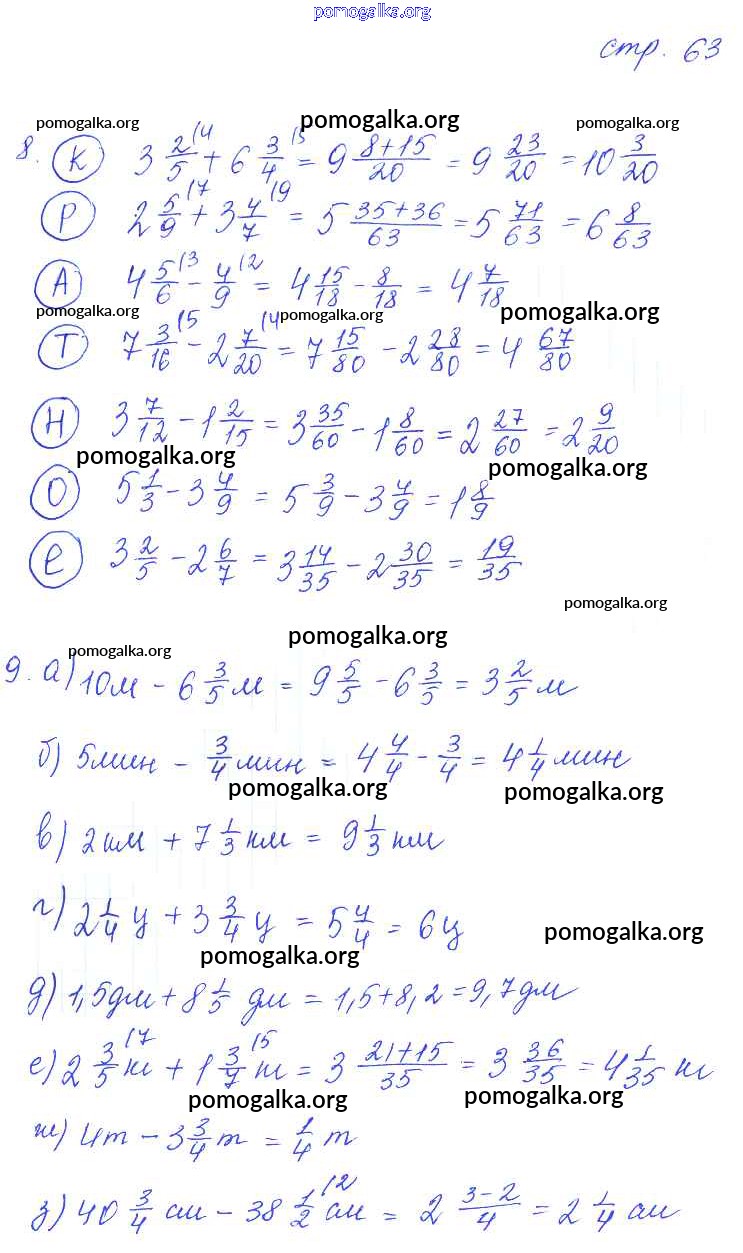 pomogalka.org
стр. 63
pomogalka.org pomogalka.org pomogalka.org
8. К 3 2/5 \4 + 6 3/4 \5 = 9 (8+15)/20 = 9 23/20 = 10 3/20
Р 2 5/9 \7 + 3 4/7 \9 = 5 (35+36)/63 = 5 71/63 = 6 8/63
А 4 5/6 \3 - 4/9 \2 = 4 15/18 - 8/18 = 4 7/18
pomogalka.org pomogalka.org pomogalka.org
Т 7 3/16 \5 - 2 7/20 \4 = 7 15/80 - 2 28/80 = 4 67/80
Н 3 7/12 - 1 2/15 = 3 35/60 - 1 8/60 = 2 27/60 = 2 9/20
pomogalka.org pomogalka.org
О 5 1/3 - 3 4/9 = 5 3/9 - 3 4/9 = 1 8/9
Е 3 2/5 - 2 6/7 = 3 14/35 - 2 30/35 = 19/35
pomogalka.org
pomogalka.org pomogalka.org
9. а) 10м - 6 3/5 м = 9 5/5 - 6 3/5 = 3 2/5 м
б) 5мин - 3/4 мин = 4 4/4 - 3/4 = 4 1/4 мин
pomogalka.org pomogalka.org
в) 2км + 7 1/3 км = 9 1/3 км
г) 2 1/4 ч + 3 3/4 ч = 5 4/4 = 6ч
pomogalka.org pomogalka.org
д) 1,5дм + 8 1/5 дм = 1,5+8,2 = 9,7дм
е) 2 3/5 \7 кг + 1 3/7 \5 кг = 3 (21+15)/35 = 3 36/35 = 4 1/35 кг
pomogalka.org pomogalka.org
ж) 4т - 3 3/4 т = 1/4 т
з) 40 3/4 см - 38 1/2 \2 см = 2 (3-2)/4 = 2 1/4 см